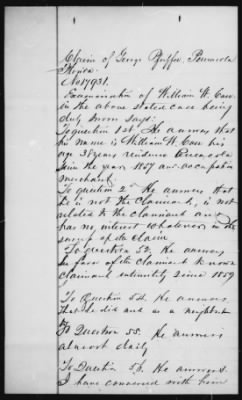 Claim of George Pfeiffer, Pensacola
Florida
No 17931.
Examination of William W. Carr
in the above stated case being
duly sworn says:
To question 1st He answers that
his name is William W. Carr his
age 38 years residence Pensacola
since the year 1857 and occupation
merchant.
To question 2d He answers that
he is not the claimant, is not
related to the claimant and
has no interest whatever in the
success of the claim
To Question 52. He answers
In favor of the claimant I've known
claimant intimately since 1859
To Question 54. He answers
That he did and as a neighbor
To Question 55. He answers
almost daily
To Question 56. He answers.
I have conversed with him